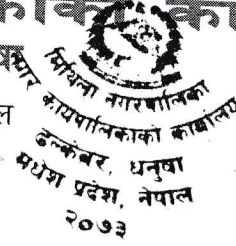 मिथिला नगरपालिका
नगर कार्यपालिकाको कार्यालय
ढल्केबर, धनुषा
मधेश प्रदेश, नेपाल
२०७३